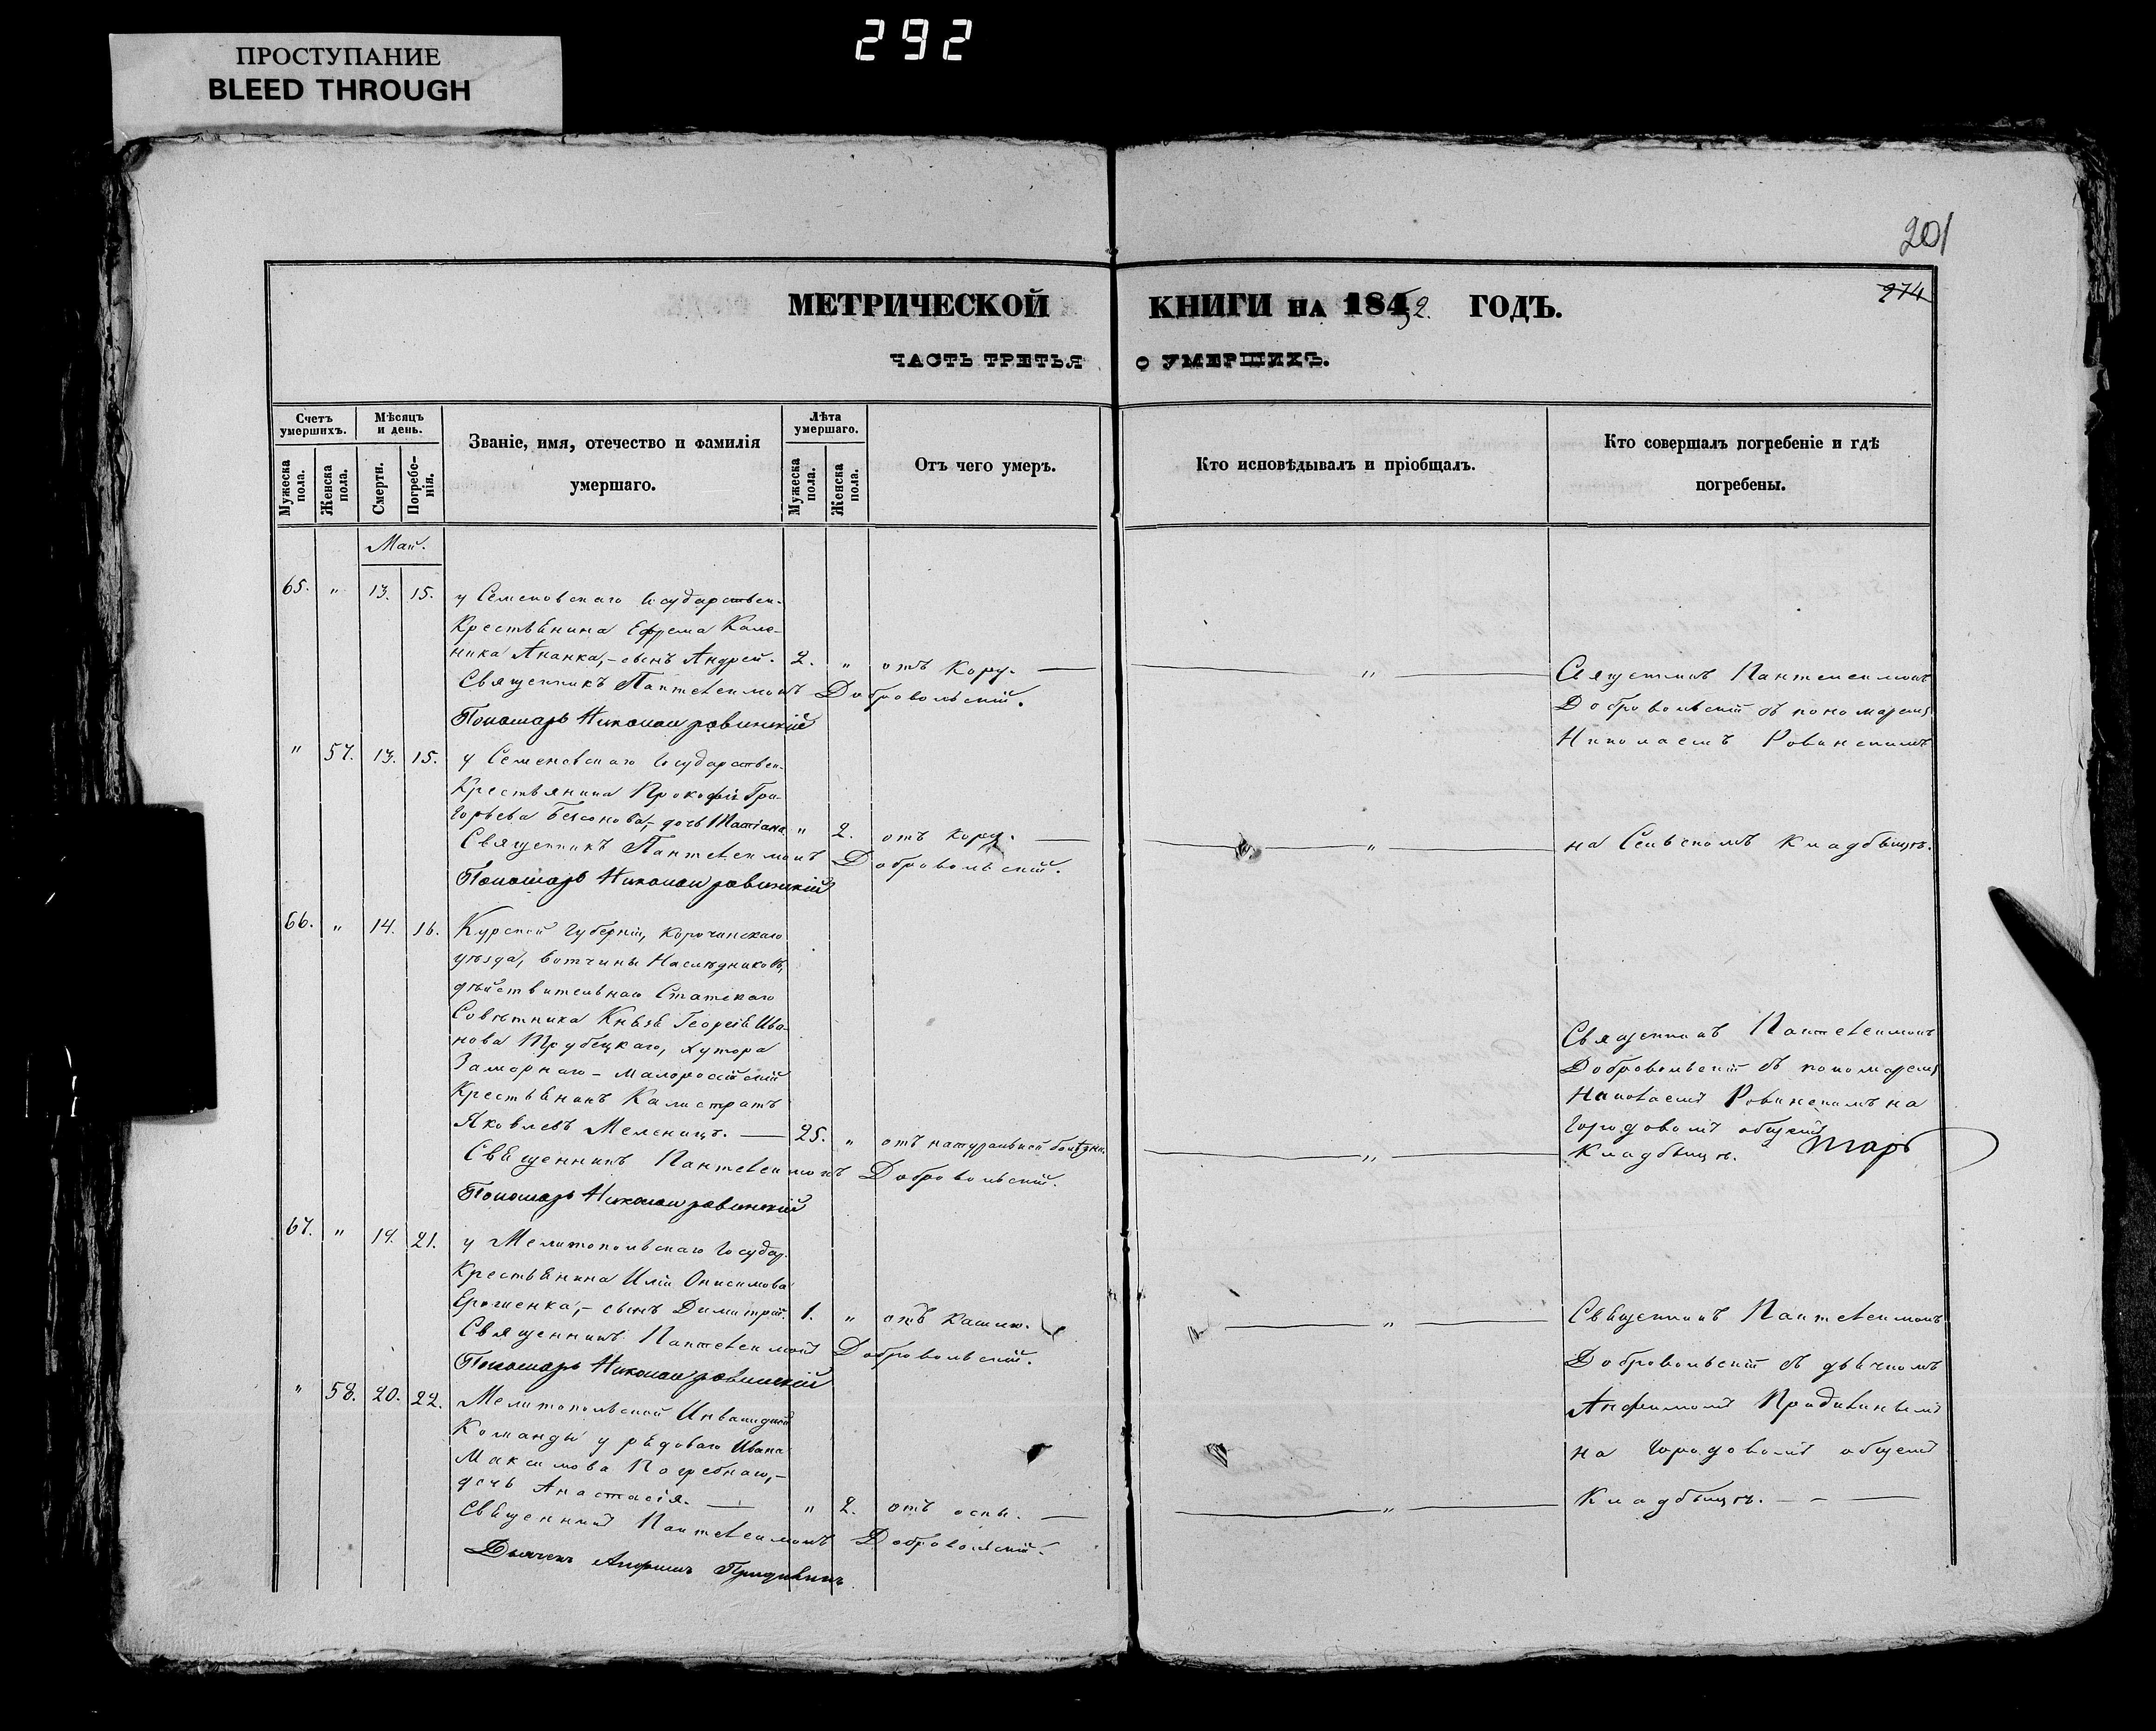 292
ПРОСТУПАНИЕ
BLEED THROUGH
201
274
МЕТРИЧЕСКОЙ КНИГИ НА 1852. ГОДЪ.
ЧАСТЬ ТРЕТЬЯ О УМЕРШИХЪ.
Счетъ умершихъ.
Мужеска пола.
Женска пола.
Мѣсяцъ и день.
Смерти.
Погребенія.
Званіе, имя, отечество и фамилія
умершаго.
Лѣта умершаго.
Мужеска пола.
Женска пола.
Отъ чего умеръ.
Кто исповѣдывалъ и пріобщалъ.
Кто совершалъ погребеніе и гдѣ
погребены.
Май.
65. " 13. 15. у Семеновскаго Государствен.
Крестьянина Ефрема Кале-
ника Ананка,- сынъ Андрей. 2. " отъ кору. — "
Священникъ Пантелеимонъ Добровольскій.
Пономарь Николай Ровинскій
Священникъ Пантелеимонъ
Добровольскій съ пономаремъ
Николаемъ Ровинскимъ
" 57. 13. 15. у Семеновскаго Государствен.
Крестьянина Прокофія Гри-
горьева Бессонова,- дочь Татіана " 2. отъ кору. — "
Священникъ Пантелеимонъ Добровольскій.
Пономарь Николай Ровинскій
на Сельскомъ Кладбищѣ.
66. " 14. 16. Курской Губерніи, Корочанскаго
уѣзда, вотчины Наслѣдниковъ,
дѣйствительнаго Статскаго
Совѣтника Князя Георгія Ива-
нова Трубецкаго, хутора
Заморнаго - малороссійскій
Крестьянинъ Калистратъ
Яковлевъ Мельницъ. — 25. " отъ натуральной болѣзни. "
Священникъ Пантелеимонъ Добровольскій.
Пономарь Николай Ровинскій
Священникъ Пантелеимонъ
Добровольскій съ пономаремъ
Николаемъ Ровинскимъ на
Городовомъ общемъ
Кладбищѣ. тарь
67. " 19. 21. у Мелитопольскаго Государ.
Крестьянина Иліи Онисимова
Ерошенка,- сынъ Димитрій. 1. " отъ кашлю. "
Священникъ Пантелеимонъ Добровольскій.
Пономарь Николай Ровинскій
Священникъ Пантелеимонъ
Добровольскій съ дьячкомъ
Анфимомъ Придивинымъ
на Городовомъ общемъ
Кладбищѣ. — - —
" 58. 20. 22. Мелитопольской Инвалидной
Команды у рядоваго Ивана
Максимова Погребнаго,-
дочь Анастасія. — " 2. отъ оспы. — "
Священникъ Пантелеимонъ Добровольскій.
Дьячекъ Анфимъ Придивинъ